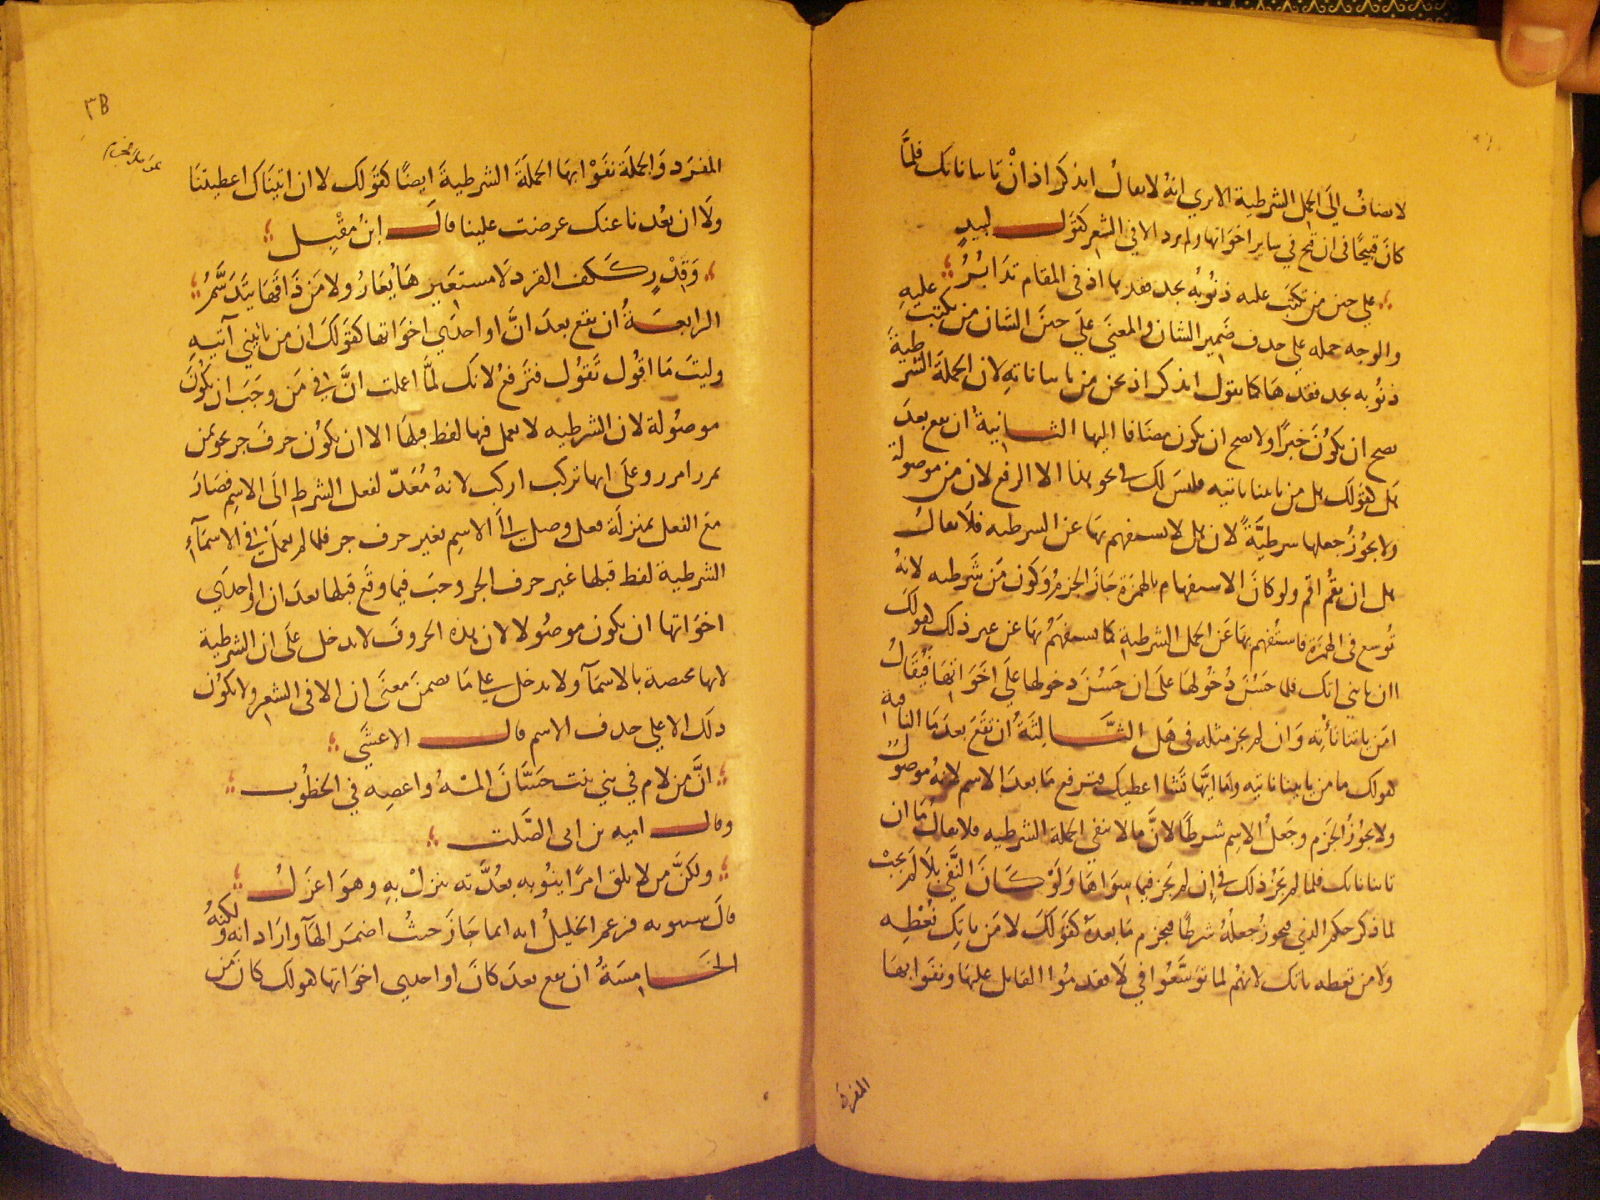 لا يضاف الى الجمل الشرطية الا يرى انه لا يقال اتذكر اذ ان تاتنا ناتك فلمَّا
كان قبيحا في ان قبح في ساير اخواتها ولم يرد الا في الشعر كقول لبيدٍ
على حين من تكتب عليه ذنوبهُ يجد فقدها اذ في المقام تدابُرُ
والوجه حمله على حذف ضمير الشان والمعنى على حين الشان من يكتب عليه
ذنوبه يجد فقدها كما يقول اتذكر اذ نحن من ياتنا ناتهِ لان الجملة الشرطيةَ
يصح ان يكونَ خبرًا ولا يصح ان يكون مضافا اليها الثانيةُ ان يقع بعدَ
هل كقولك هل من ياتينا ناتيه فليس لك في نحو هذا الا الرفع لان من موصولة
ولا يجوزُ جعلها شرطيَّةً لان هل لا يستفهم بها عن الشرطيه فلا يقالُ
هل ان تقُم اقم ولو كانَ الاستفهام بالهمزة جازَ الجزمُ وكون مَن شرطيه لانهُ
تُوسع في الهمزة فاستُفهم بها عَن الجمل الشرطية كما يستفهَمُ بها عن غير ذلك كقولكَ
اان تاتني اتك فلما حسُنَ دُخُولها على ان حَسُنَ دخولها على اخَوَاتِهَا فيُقالُ
امَن ياتنا نأتِه وان لم يجز مثله في هَل الثالثَةُ ان تقع بعدَ مَا النافية
كقولك ما من ياتينا ناتيه وما ايُّها تشا اعطيك فترفع مَا بعدَ الاسم لانهُ موصولٌ
ولا يجوزُ الجزم وجعلُ الاسم شرطًا لانَّ ما لا تنفي الجملة الشرطيه فلا يقالُ مَا ان
تاتنا ناتك فلما لم يجُز ذلك في إن لم يجَز فيما سوَاها وَلَوْ كانَ النَّفي بلَا لم يجبْ
لما ذكر حكم الذي فيجوزُ جعلُهُ شرطًا فيجزم مَا بعدَهُ كقولكَ لا مَن ياتِك تُعْطِه
ولا من تعطه ياتك لانهُم لما توسَّعُوا في لَا فقدمُوا العَامل عليهَا ونفَوا بهَا
المفرَدَ
٣٨
المفرَد وَالجملَة نفَوْا بهَا الجملَةَ الشرطيةَ ايضًا كقولك لا ان اتيناك اعطيتنَا
ولَا ان بعُدنا عنك عرضت علينا قالَ ابنُ مقْبِل
وَقِدْرٍ ككفِ القرد لَا مستعيرهَا يُعَارُ ولا مَن ذَاقَهَا يتَدَسَّمُ
الرابعَةُ ان يقع بعدَ انَّ او احدَي اخوَاتها كقولكَ ان من ياتيني آتيهِ
وليتَ مَا اقُول تَقُول فترفعُ لانك لمَّا اعملت انَّ في مَن وجَبَ ان يكُونَ
موصُولة لان الشرطيه لا يعمل فيها لفظ قبلهَا الا ان يكُون حرفَ جر نحو بمن
تمرر امرر وعلى ايها تركب اركب لانهُ مُعَدّ لفعل الشرط الَى الاسم فصَارَ
مَع الفعل بمنزلَة فعل وصل الَى الاسم بغير حرف جر فلما لم يعمَل في الاسمآء
الشرطية لفظ قبلها غير حرف الجر وجبَ فيما وقع قبلها بعدَ ان او احدَي
اخواتها ان يكون موصُولا لان هذه الحروفَ لا تدخل علَى ان الشرطية
لانها مختصة بالاسمآء ولا تدخل على مَا تضمنَ معنَى ان الا في الشعر ولا يكونُ
ذلكَ الا على حذف الاسم قالَ الاعشَي
انَّ مَن لام في بني بنت حسَّانَ المْهُ واعصِه في الخطُوب
وقال اميه بن ابى الصَّلت
ولكنَّ من لا يلق امرًا ينُوبه بعُدَّته ينزلْ بهِ وهوَ اعزَلُ
قالَ سيبويه فزعم الخليلُ انه انما جَازَ حيثُ اضمرَ الهَآ وارَاد انه ولكنهُ
الخَامِسَةُ ان يقع بعدَ كانَ او احدي اخوَاتها كقولك كانَ مَن